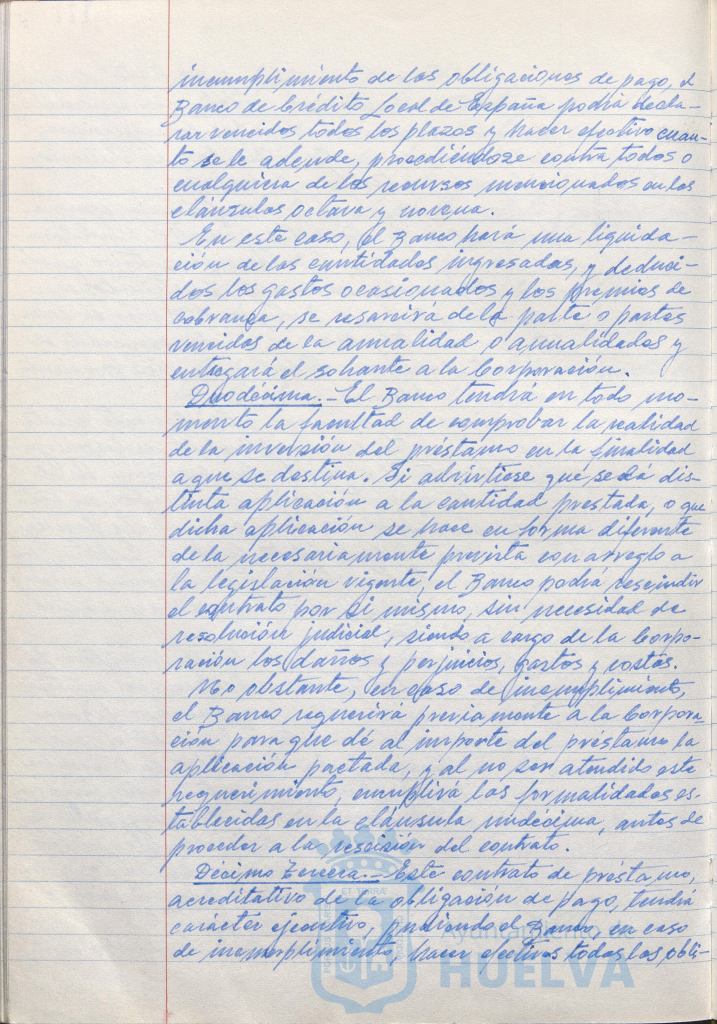 incumplimiento de las obligaciones de pago, el
Banco de Crédito Local de España podrá decla-
rar vencidos todos los plazos y hacer efectivo cuan-
to se le adende, procediéndose contra todos o
cualquiera de los recursos mencionados en las
cláusulas octava y novena.
En este caso, el Banco hará una liquida-
ción de las cantidades ingresadas, y deduci-
dos los gastos ocasionados y los premios de
cobranza, se resarcirá de la parte o partes
vencidas de la anualidad o anualidades y
entregará el sobrante a la Corporación.
Duodécima.- El Banco tendrá en todo mo-
mento la facultad de comprobar la realidad
de la inversión del préstamo en la finalidad
a que se destina. Si advirtiese que se dá dis-
tinta aplicación a la cantidad prestada, o que
dicha aplicación se hace en forma diferente
de la necesariamente prevista con arreglo a
la legislación vigente, el Banco podrá rescindir
el contrato por si mismo, sin necesidad de
resolución judicial, siendo a cargo de la Corpo-
ración los daños y perjuicios, gastos y costas.
No obstante, en caso de incumplimiento,
el Banco requerirá previamente a la Corpora-
ción para que dé al importe del préstamo la
aplicación pactada, y al no ser atendido este
requerimiento, cumplirá las formalidades es-
tablecidas en la cláusula undécima, antes de
proceder a la rescisión del contrato.
Décimo Tercera.- Este contrato de préstamo,
acreditativo de la obligación de pago, tendrá
carácter ejecutivo, pudiendo el Banco, en caso
de incumplimiento, hacer efectivas todas las obli-
Ayuntamiento de
HUELVA